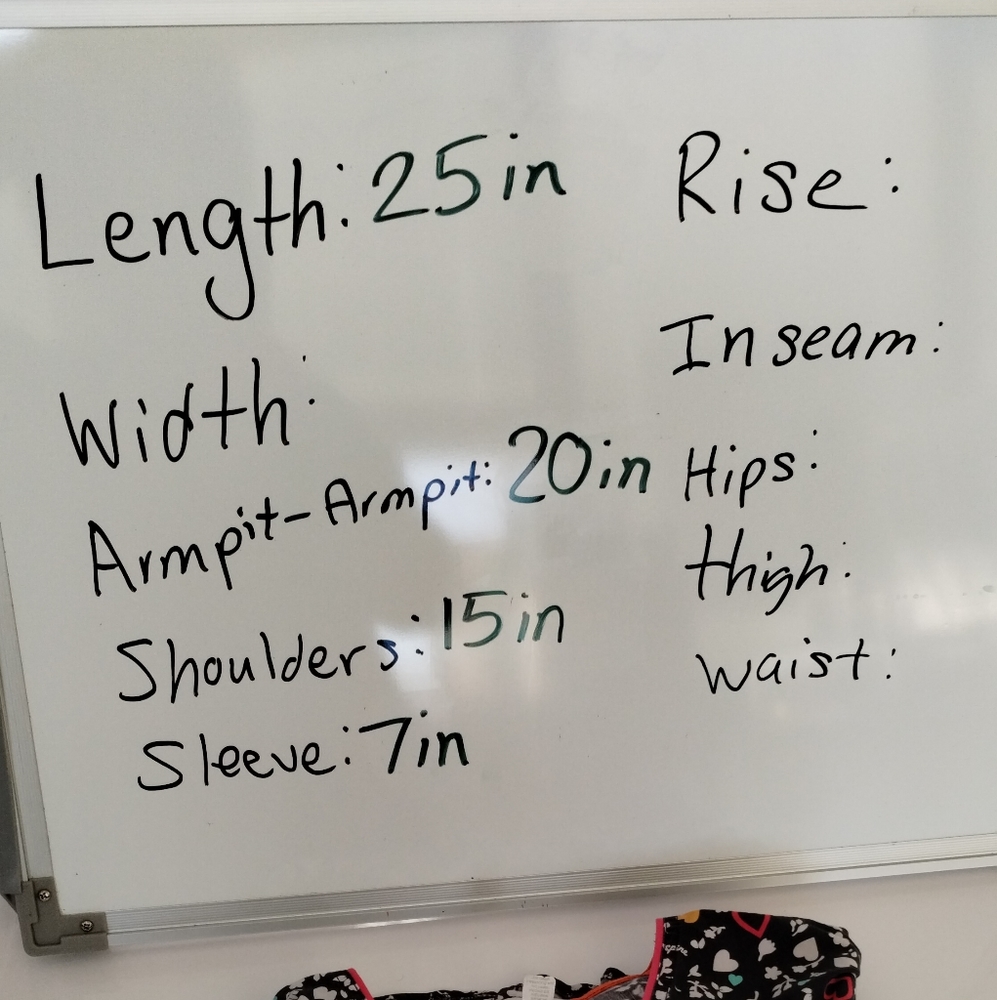 Length: 25in
Width:
Armpit-Armpit: 20in
Shoulders: 15in
Sleeve: 7in
Rise:
Inseam:
Hips:
thigh:
waist: